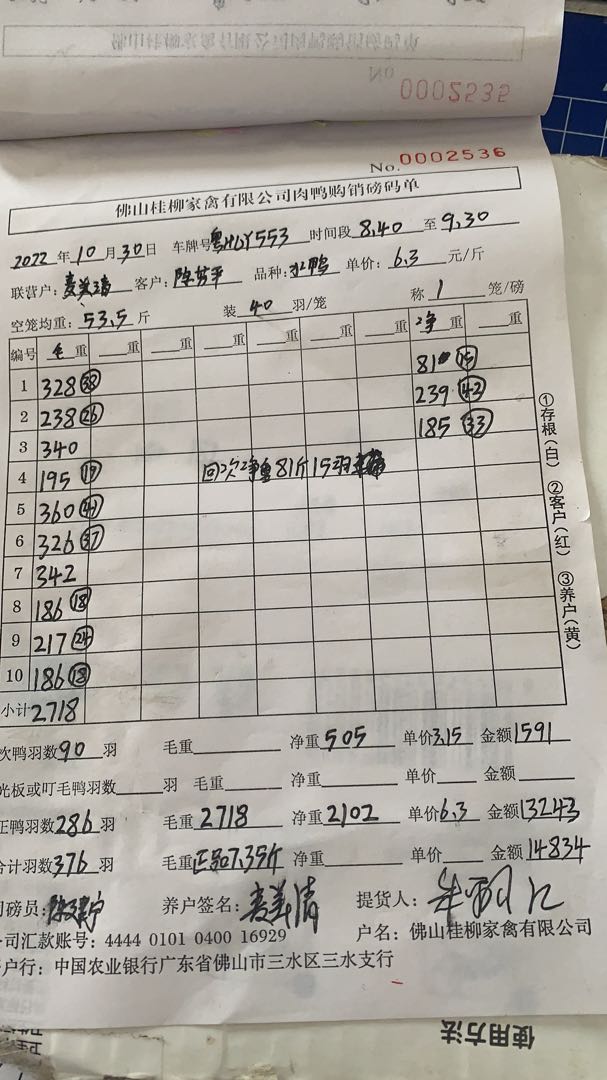 0002535
No
No. 0002536
佛山桂柳家禽有限公司肉鸭购销磅码单
2022年10月30日 车牌号 时间段8.40至9.30
联营户: 客户: 品种: 鸭 单价:6.3元/斤
空笼均重:53.5斤 装40羽/笼 称1笼/磅
编号 毛重 重 重 重 重 重 净重 重
1 328 38 81 15
2 238 26 239 42
3 340 185 33
4 195 19 回次净重81斤15羽
5 360 41
6 326 37
7 342
8 186 18
9 217 24
10 186 18
小计 2718
次鸭羽数90羽 毛重 净重505 单价3.15 金额1591
光板或叮毛鸭羽数 羽 毛重 净重 单价 金额
正鸭羽数286羽 毛重2718 净重2102 单价6.3 金额13243
合计羽数376羽 毛重正品7.35斤 净重 单价 金额14834
司磅员: 养户签名: 提货人:
公司汇款账号: 4444 0101 0400 16929 户名: 佛山桂柳家禽有限公司
开户行: 中国农业银行广东省佛山市三水区三水支行
①存根(白) ②客户(红) ③养户(黄)
使用方法